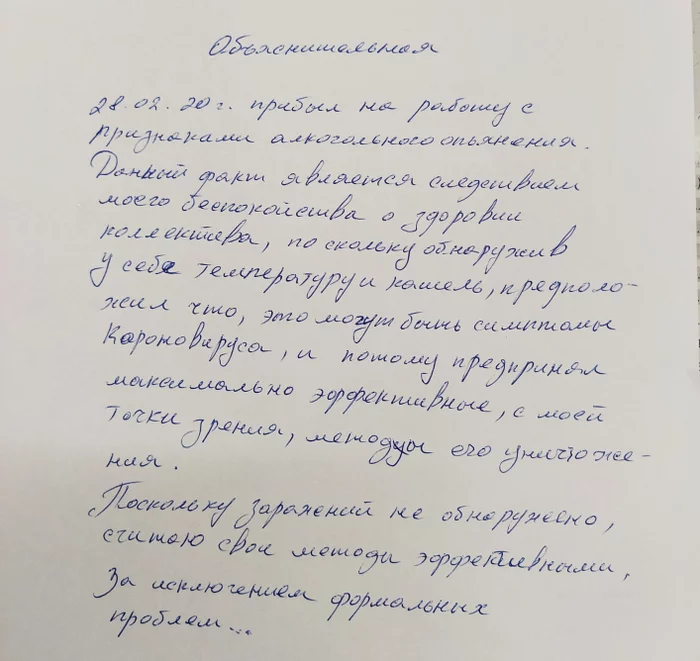 Объяснительная
28.02.20г. прибыл на работу с
признаками алкогольного опьянения.
Данный факт является следствием
моего беспокойства о здоровии
коллектива, по скольку обнаружив
у себя температуру и кашель, предполо-
жил что, это могут быть симптомы
Кароновируса, и потому предпринял
максимально эффективные, с моей
точки зрения, методы его уничтоже-
ния.
Поскольку заражений не обнаружено,
считаю свои методы эффективными,
За исключением формальных
проблем...